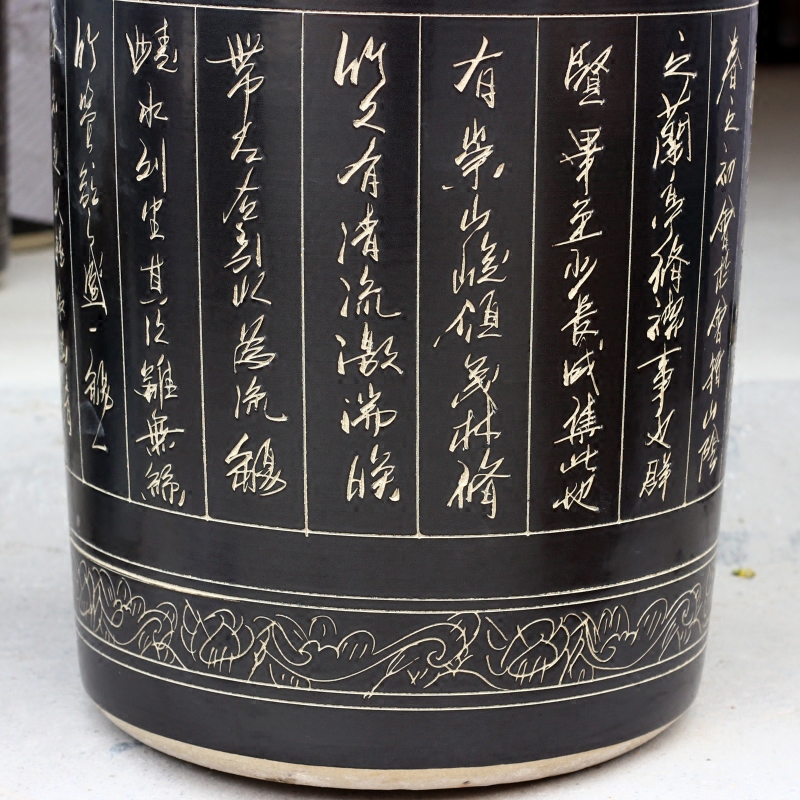 春之初會於會稽山陰
之蘭亭脩禊事也群
賢畢至少長咸集此地
有崇山峻領茂林脩
竹又有清流激湍暎
帶左右引以為流觴
曲水列坐其次雖無絲
竹管絃之盛一觴一